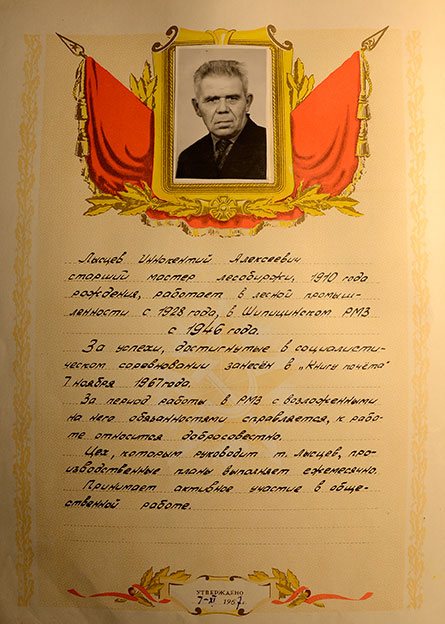 Лысцев Иннокентий Алексеевич
старший мастер лесобиржи, 1910 года
рождения, работает в лесной промыш-
ленности с 1928 года, в Шипицинском РМЗ
с 1946 года.
За успехи, достигнутые в социалисти-
ческом соревновании занесён в „Книгу почёта"
7 ноября 1967 года.
За период работы в РМЗ с возложенными
на него обязанностями справляется, к рабо-
те относится добросовестно.
Цех, которым руководит т. Лысцев, про-
изводственные планы выполняет ежемесячно.
Принимает активное участие в обще-
ственной работе.
УТВЕРЖДЕНО
7-XI 1967г.